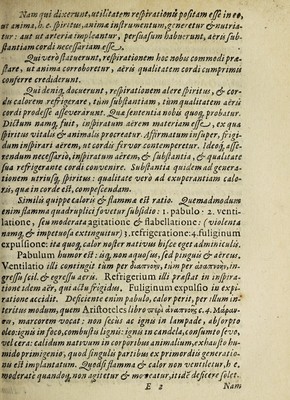 Nam qui dixerunt, utilitatem respirationis positam esse in eo,
ut anima, h. e. spiritus, animæ instrumentum, generetur & nutria-
tur: aut ut arteria impleantur, persuasum habuerunt, aëris sub-
stantiam cordi necessariam esse.
Qui verò statuerunt, respirationem hoc nobis commodi præ-
stare, ut anima corroboretur, aëris qualitatem cordi cumprimis
conferre crediderunt.
Qui deniq; docuerunt, respirationem alere spiritus, & cor-
dis calorem refrigerare, tùm substantiam, tùm qualitatem aëris
cordi prodesse asseverârunt. Quæ sententia nobis quoq; probatur.
Dictum namq; fuit, inspiratum aërem misceri cum sanguine, ex qua
spiritus vitalis & animalis procreatur. Affirmatum insuper, frigi-
dum inspirari aërem, ut cordis fervor contemperetur. Ideoq; asse-
rendum necessariò, inspiratum aërem, & substantia, & qualitate
sua refrigerante cordi convenire. Substantia quidem ad genera-
tionem utriusq; spiritus: qualitate verò ad exuperantiam calo-
ris, qua in corde est, compescendam.
Similis quippe caloris & flammæ est ratio. Quemadmodum
enim flamma quadruplici fovetur subsidio: 1. pabulo: 2. venti-
latione, seu moderata agitatione & flabellatione: (violenta
namq; & impetuosa extinguitur) 3. refrigeratione: 4. fuliginum
expulsione: ita quoq; calor noster nativus hisce eget adminiculis.
Pabulum humor est: isq; non aquosus, sed pinguis & aëreus.
Ventilatio illi contingit tùm per
gressu scil. & egressu aëris. Refrigerium illi præstat in inspira-
tione idem aër, qui actu frigidus, Fuliginum expulsio in expi-
ratione accidit. Deficiente enim pabulo, calor perit, per illum in-
teritus modum, quem Aristoteles libro
marcorem vocat: non secus ac ignis in lampade, absorpto
oleo: ignis in foco, combustis lignis: ignis in candela, consumto sevo,
vel cera: calidum nativum in corporibus animalium, exhausto hu-
mido primigenio, quod singulis partibus ex primordiis generatio-
nis est implantatum. Quodsi flamma & calor non ventiletur, h. e.
moderatè quandoq; non agitetur & moveatur, itidē deficere solet.
E 2 Nam